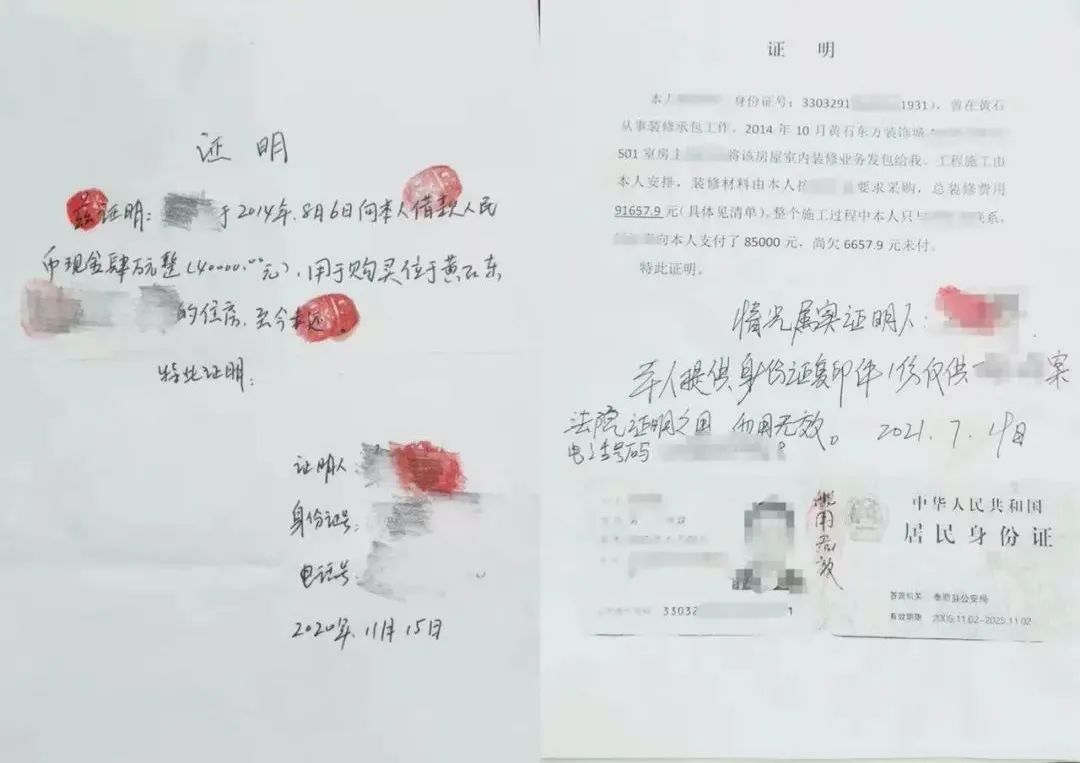 证 明
兹证明: 于2014年.8月6日向本人借款人民
币现金肆万元整(40000.00元).用于购买位于黄石东
的住房,至今未还.
特此证明:
证明人
身份证号:
电话号
2020年.11月15日
证 明
本人 身份证号:3303291 1931),曾在黄石
从事装修承包工作。2014年10月黄石东方装饰城
501室房主 将该房屋室内装修业务发包给我。工程施工由
本人安排,装修材料由本人按 要求采购,总装修费用
91657.9元(具体见清单)。整个施工过程中本人只与 联系,
向本人支付了85000元,尚欠6657.9元未付。
特此证明。
情况属实证明人:
本人提供身份证复印件1份仅供 案
法院证明之用 而用无效。 2021.7.19日
电话号码
中华人民共和国
居民身份证
用无效
签发机关 泰顺县公安局
有效期限 2005.11.02-2025.11.02
33032 1